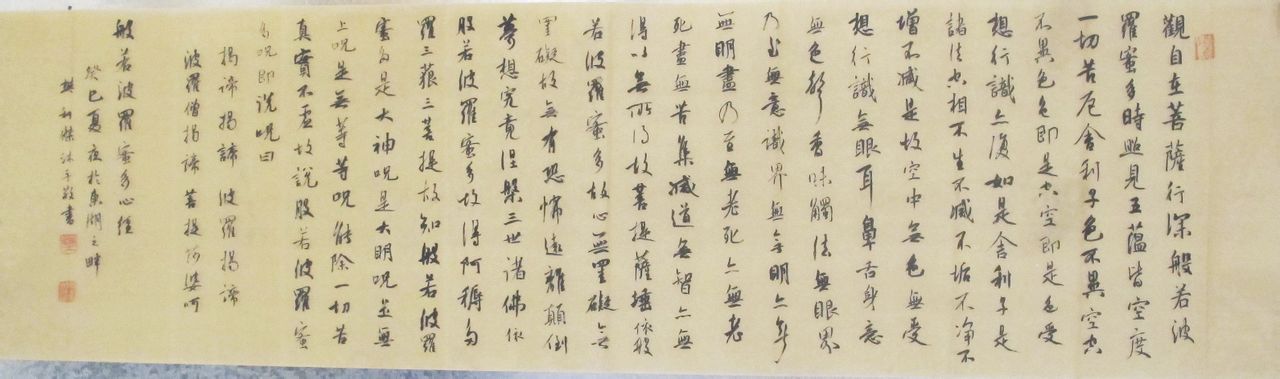 觀自在菩薩行深般若波
羅蜜多時照見五蘊皆空度
一切苦厄舍利子色不異空空
不異色色即是空空即是色受
想行識亦復如是舍利子是
諸法空相不生不滅不垢不净不
增不減是故空中無色無受
想行識無眼耳鼻舌身意
無色聲香味觸法無眼界
乃至無意識界無無明亦無
無明盡乃至無老死亦無老
死盡無苦集滅道無智亦無
得以無所得故菩提薩埵依般
若波羅蜜多故心無罣礙無
罣礙故無有恐怖遠離顛倒
夢想究竟涅槃三世諸佛依
般若波羅蜜多故得阿耨多
羅三藐三菩提故知般若波羅
蜜多是大神咒是大明咒是無
上咒是無等等咒能除一切苦
真實不虛故說般若波羅蜜
多咒即說咒曰
揭諦揭諦波羅揭諦
波羅僧揭諦菩提薩婆訶
般若波羅蜜多心經
癸巳夏夜於東湖之畔
沐手敬書